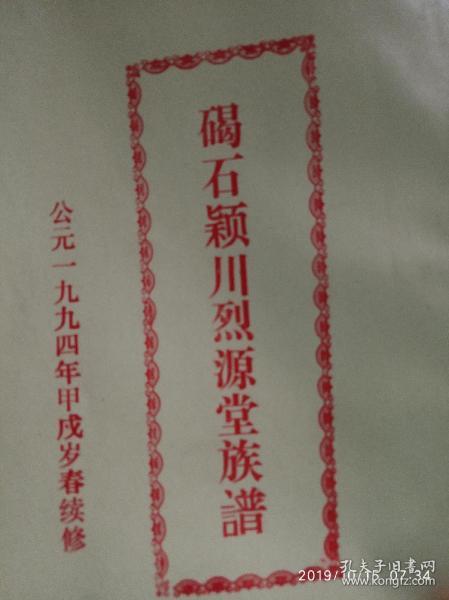 碣石颖川烈源堂族譜
公元一九九四年甲戌岁春续修
2019/10/15 07:34
孔夫子旧书网
www.kongfz.com